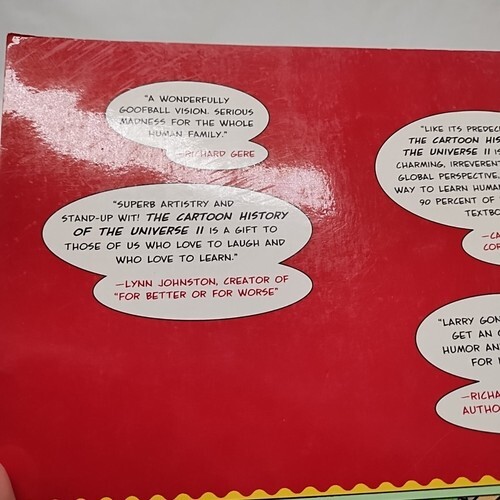 "A WONDERFULLY
GOOFBALL VISION. SERIOUS
MADNESS FOR THE WHOLE
HUMAN FAMILY."
—RICHARD GERE
"SUPERB ARTISTRY AND
STAND-UP WIT! THE CARTOON HISTORY
OF THE UNIVERSE II IS A GIFT TO
THOSE OF US WHO LOVE TO LAUGH AND
WHO LOVE TO LEARN."
—LYNN JOHNSTON, CREATOR OF
"FOR BETTER OR FOR WORSE"
"LIKE ITS
THE CARTOON
THE UNIVERSE II
CHARMING,
GLOBAL PERSPECTIVE.
WAY TO LEARN
90 PERCENT OF
"LARRY
GET AN
HUMOR
FOR